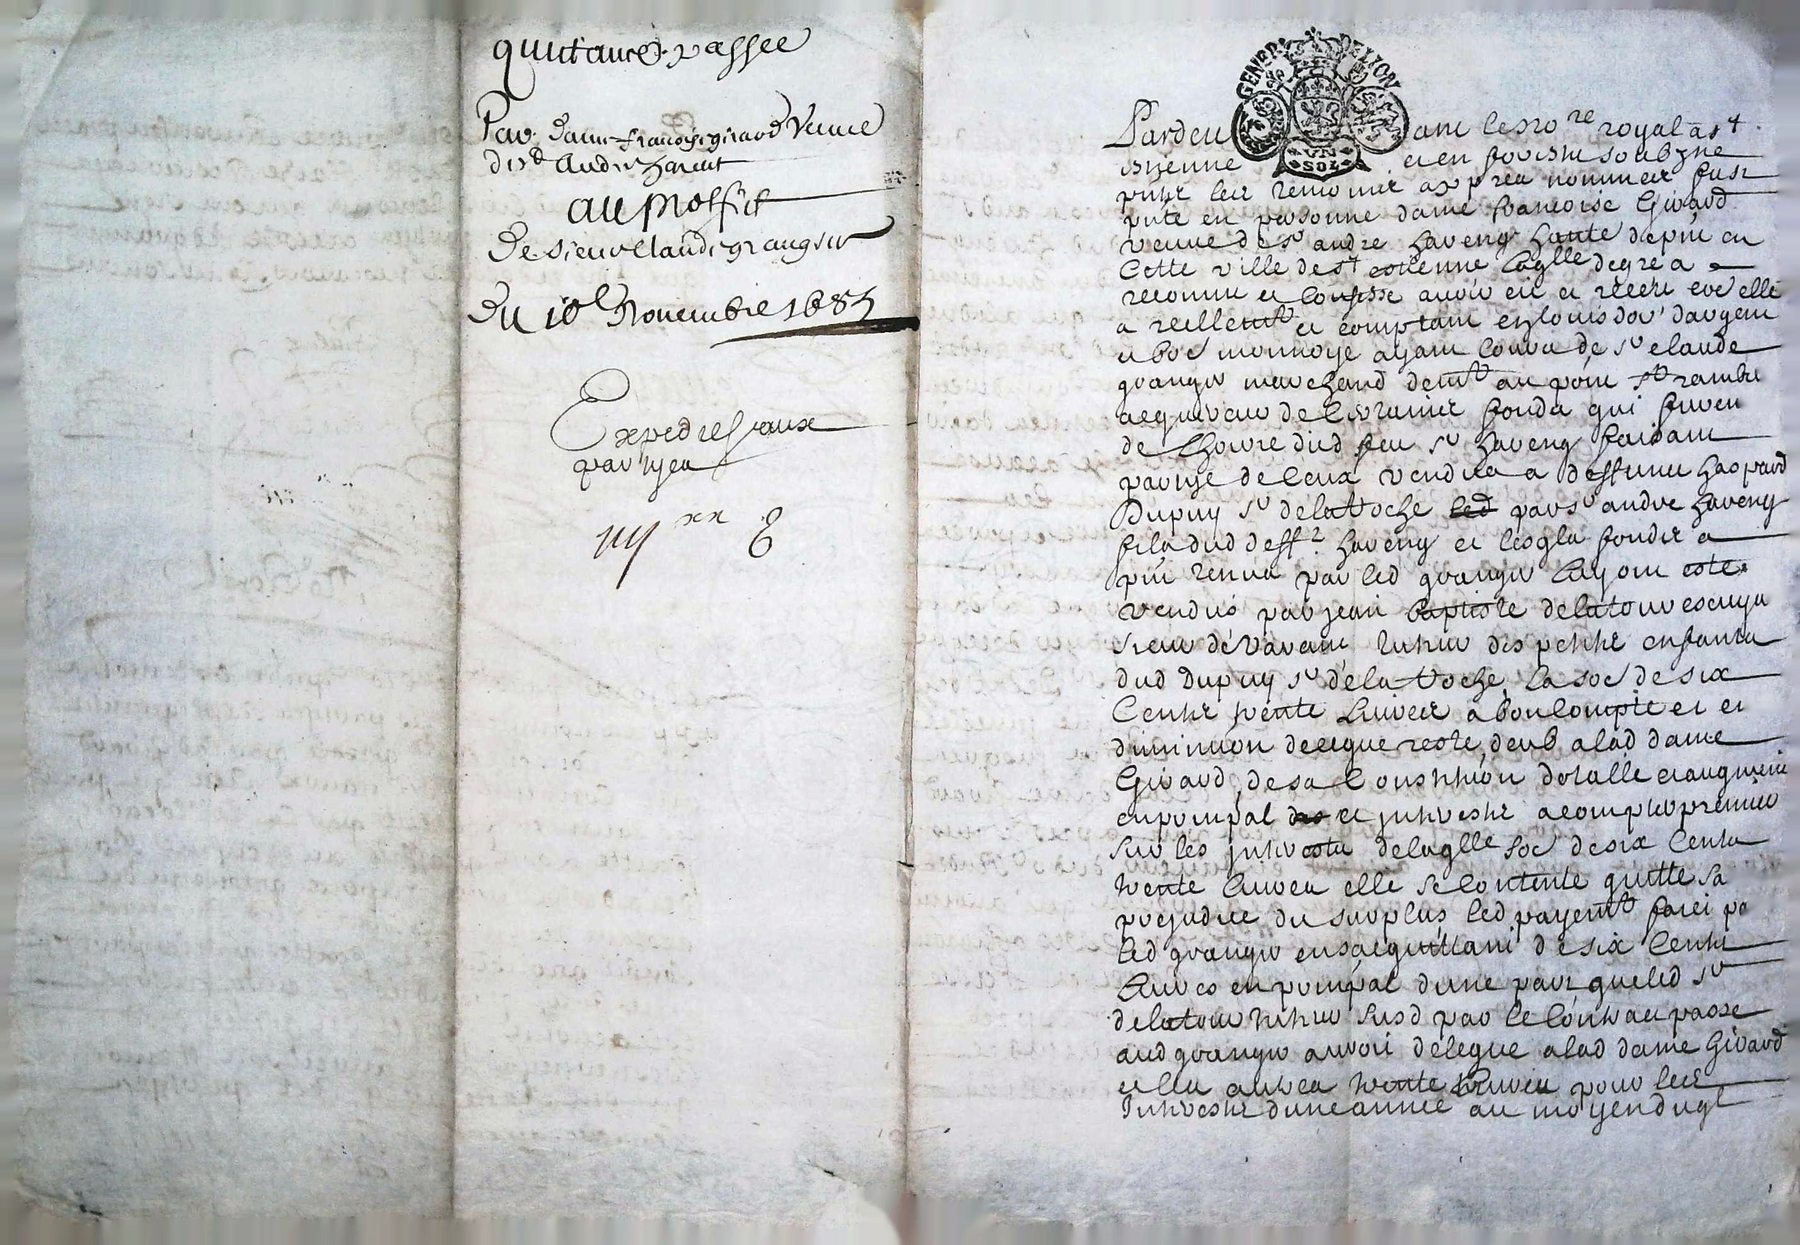 quittance passee
Par dame françoise girard veuve
du sr André
au proffict
De sieur claude grangier
du 10e Novembre 1685
Expedié aux
parties
GENER DE LYON
VN
SOL
Pardevant le nore royal a st
estienne et en soubzne
put les temoins apres nommes fust
pnte en personne dame francoise Girard
veuve de sr andre haveng hante depnt en
Cette ville de st estienne laqlle de gre a
reconnu et confesse avoir eu et receu
a reellemt et comptant en louis d'or d'argent
et boe monnoye ayant cours de sr claude
grangier marchand demt au pont st rambe
acquereur de fonds qui furen
de dud feu sr haveng faisant
partye de ceux vendus a deffunct gaspard
Dupuy sr de la Roche led par sr andre haveng
fils dud defft haveng et lesqls fonds a
pnt tenus par led grangier luy ont este
vendus par jean baptiste de la tour escuye
sieur de Varant tuteur des petits enfants
dud Dupuy sr de la Roche, la soe de six
Cents trente livres a bon compte et en
diminuon de ce que reste deub a lad dame
Girard de sa constitution dotalle et augment
en pnpal des et interests a compter premier
sur les interests de laqlle soe de six cents
trente livres elle se contente quitte sa
prejudice du surplus led payemt faict pa
led grangier en acquittant de six Cents
livres en prinpal dune part que led sr
de la tour tuteur susd par le contract passe
aud grangier avoit delegue a lad dame Girard
et les autres trente livres pour les
Interests dune annee au moyen duql